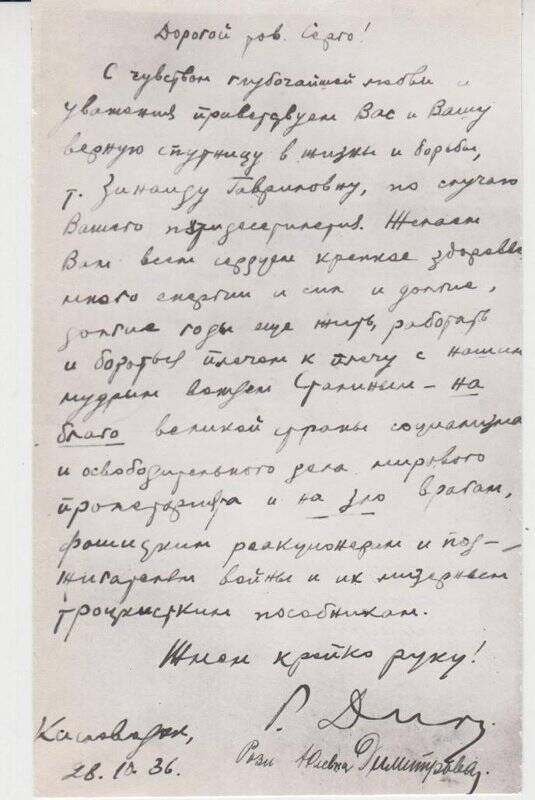 Дорогой тов. Серго!
С чувством глубочайшей любви и
уважения приветствуем Вас и Вашу
верную спутницу в жизны и борьбы,
т. Зинаиду Гавриловну, по случаю
Вашего пятидесятилетия. Желаем
Вам всем сердцем крепкое здоровье,
много енергии и сил и долгие,
долгие годы еще жить, работать
и бороться плечем к плечу с нашим
мудрим вождем Сталиным – на
благо великой страны социализма
и освободительного дела мирового
пролетариата и на зло врагам,
фашистким реакционерам и под-
жигателям войны и их мизерным
троцкистким пособникам.
Жмем крепко руку!
Г. Дим.
Кисловодск, Рози Юлевна Димитрова
28.10 36.